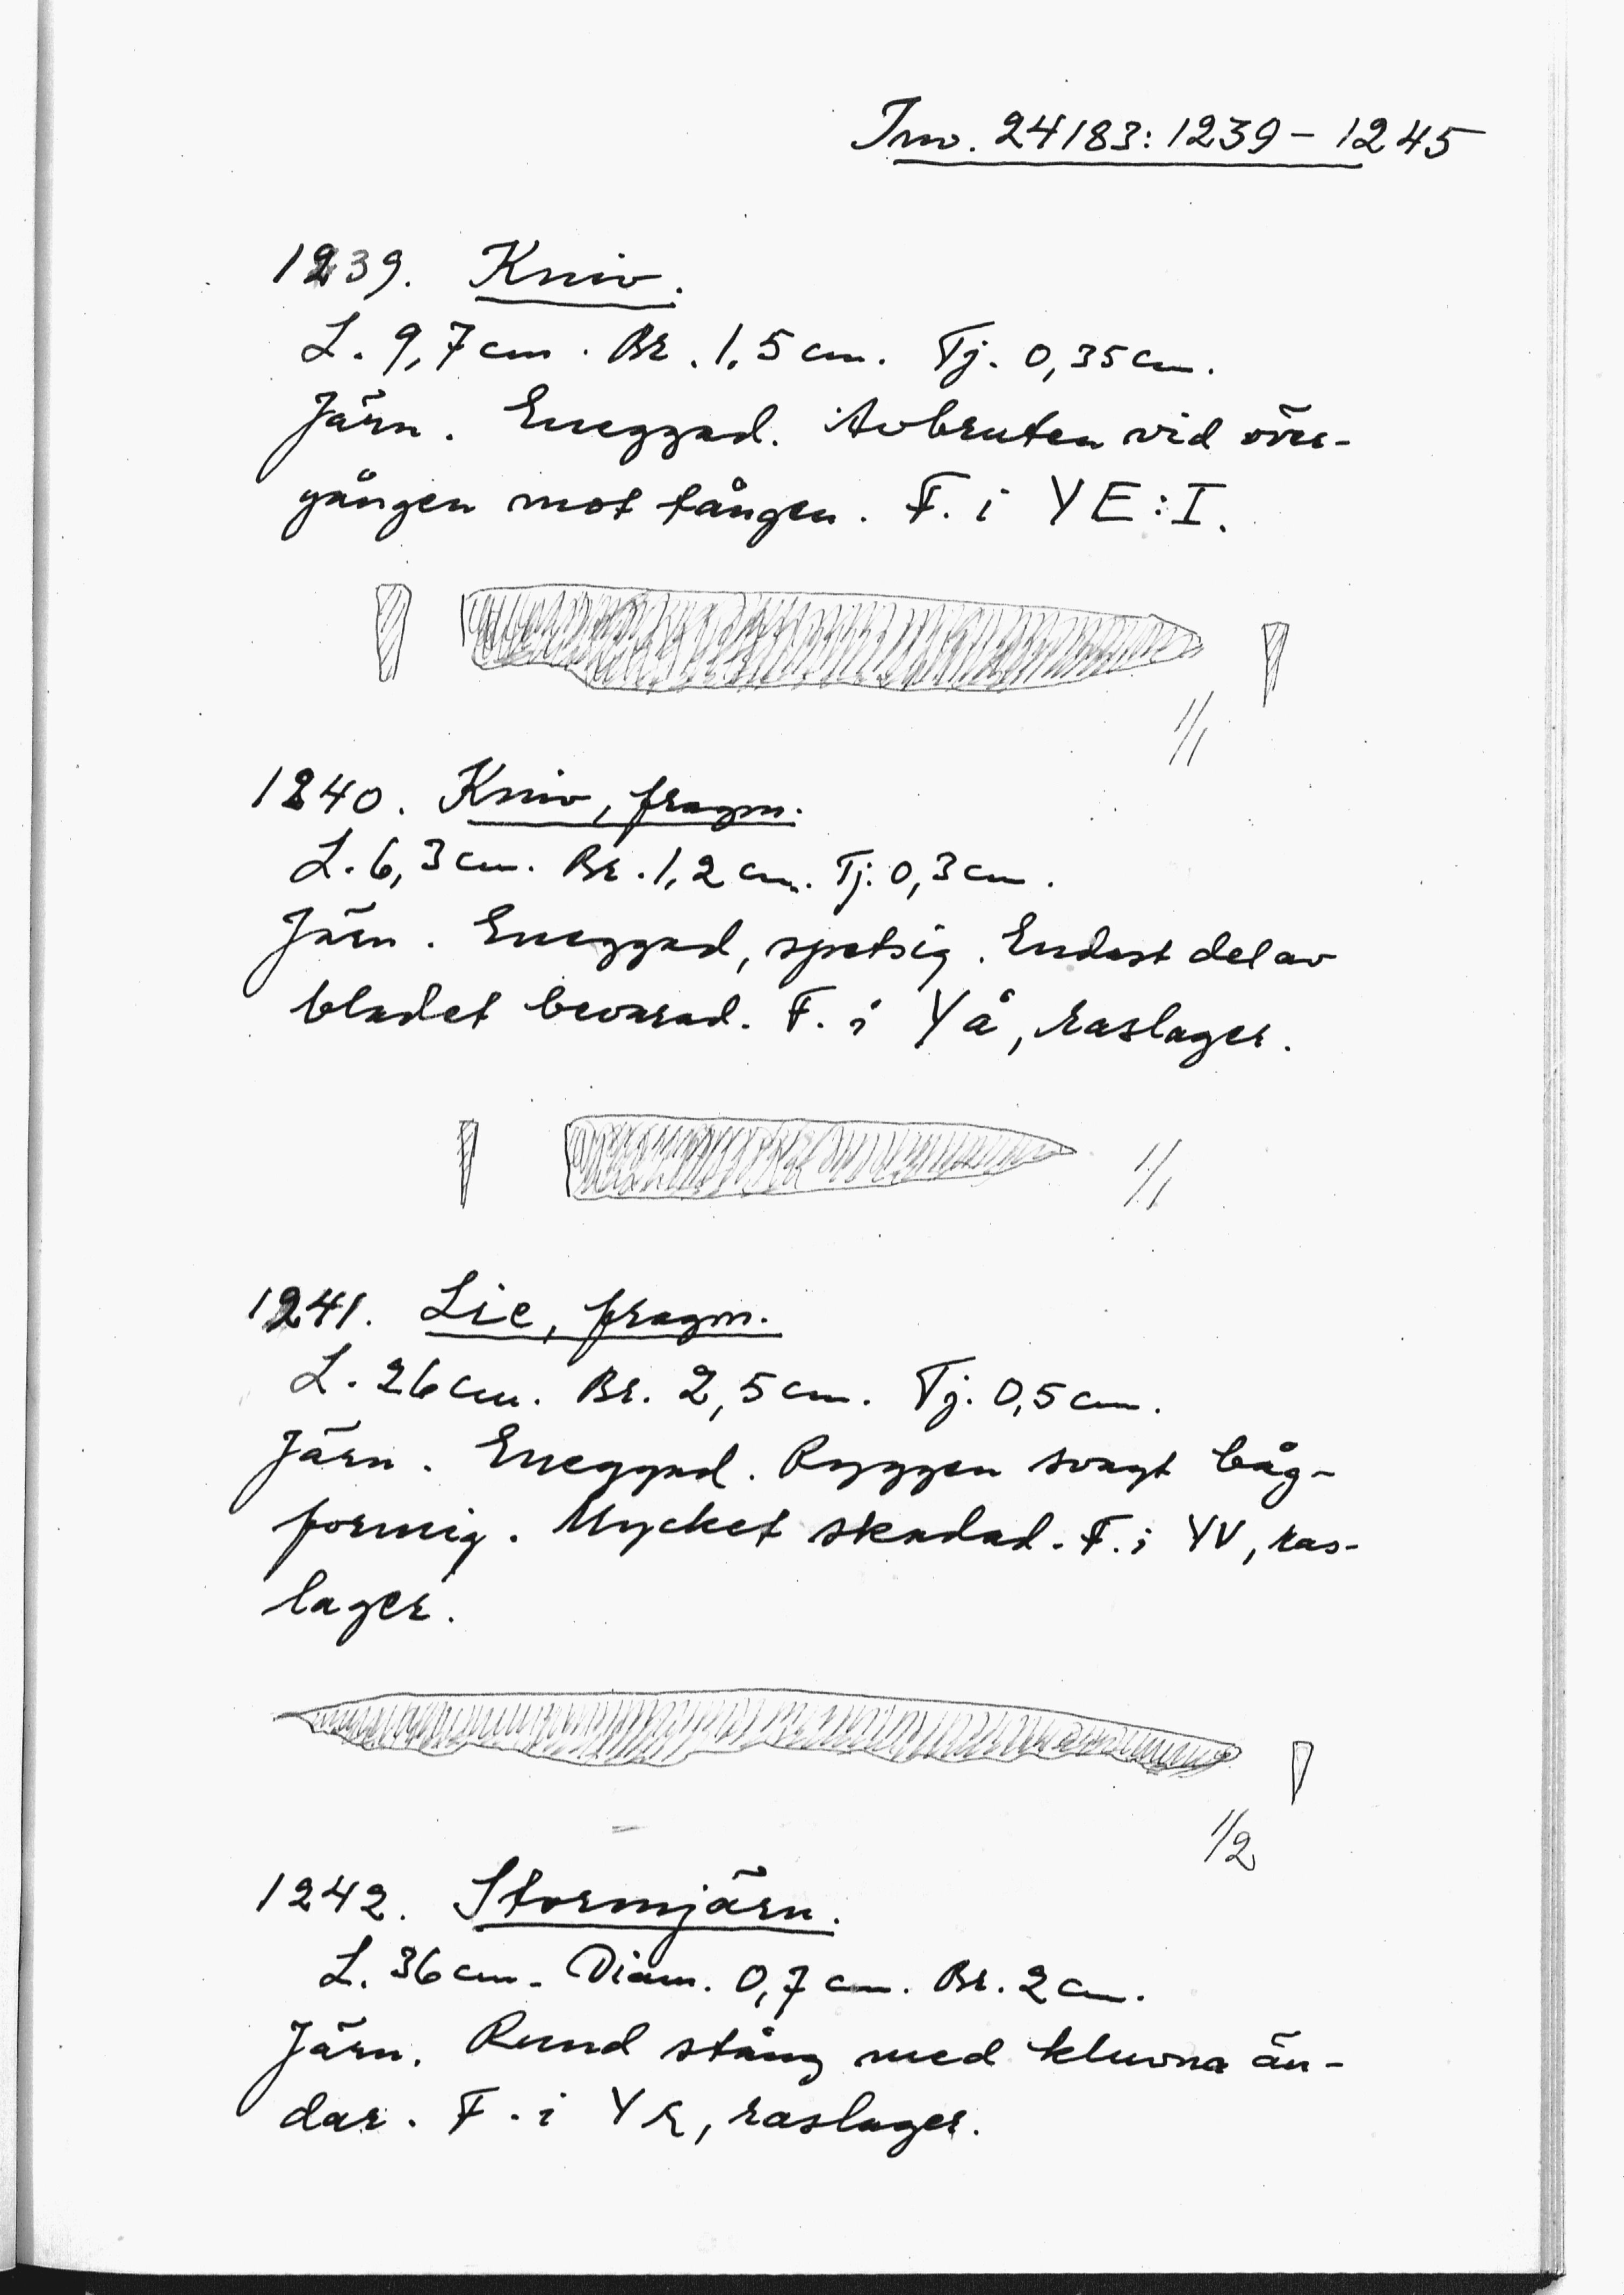 Inv. 24183:1239–1245
1239. Kniv.
L. 9,7 cm. Br. 1,5 cm. Tj. 0,35 cm.
Järn. Eneggad. Avbruten vid över-
gången mot tången. F. i YE:I.
1/1
1240. Kniv, fragm.
L. 6,3 cm. Br. 1,2 cm. Tj. 0,3 cm.
Järn. Eneggad, spetsig. Endast del av
bladet bevarad. F. i YÅ, raslager.
1/1
1241. Lie, fragm.
L. 26 cm. Br. 2,5 cm. Tj. 0,5 cm.
Järn. Eneggad. Ryggen svagt båg-
formig. Mycket skadad. F. i YV, ras-
lager.
1/2
1242. Stormjärn.
L. 36 cm. Diam. 0,7 cm. Br. 2 cm.
Järn. Rund stång med kluvna än-
dar. F. i YR, raslager.